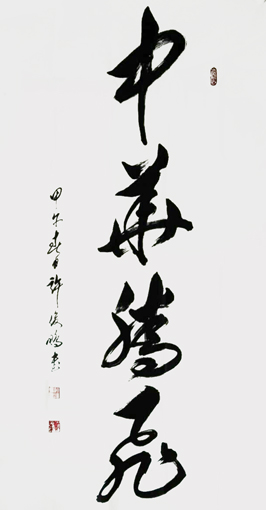 中華騰飛
甲午春 許 鵬書